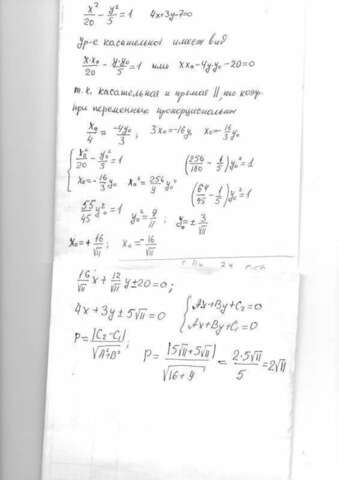 x²/20 - y²/5 = 1   4x+3y-7=0
ур-е касательной имеет вид
x·x₀/20 - y·y₀/5 = 1 или xx₀-4y·y₀-20=0
т.к. касательная и прямая ||, то коэф.
при переменных пропорциональны
x₀/4 = -4y₀/3; 3x₀=-16y₀ x₀=-16/3 y₀
{ x₀²/20 - y₀²/5 = 1   (256/180 - 1/5) y₀²=1
x₀=-16/3 y₀   x₀²=256/9 y₀²   (64/45 - 1/5) y₀²=1
55/45 y₀²=1   y₀²=9/11; y₀=± 3/√11
x₀=+ 16/√11; x₀=- 16/√11
16/√11 x + 12/√11 y ± 20=0;
4x+3y±5√11=0   { Ax+By+C₂=0
Ax+By+C₁=0
P= |C₂-C₁|/√A²+B²;   P= |5√11+5√11|/√16+9 = 2·5√11/5 = 2√11